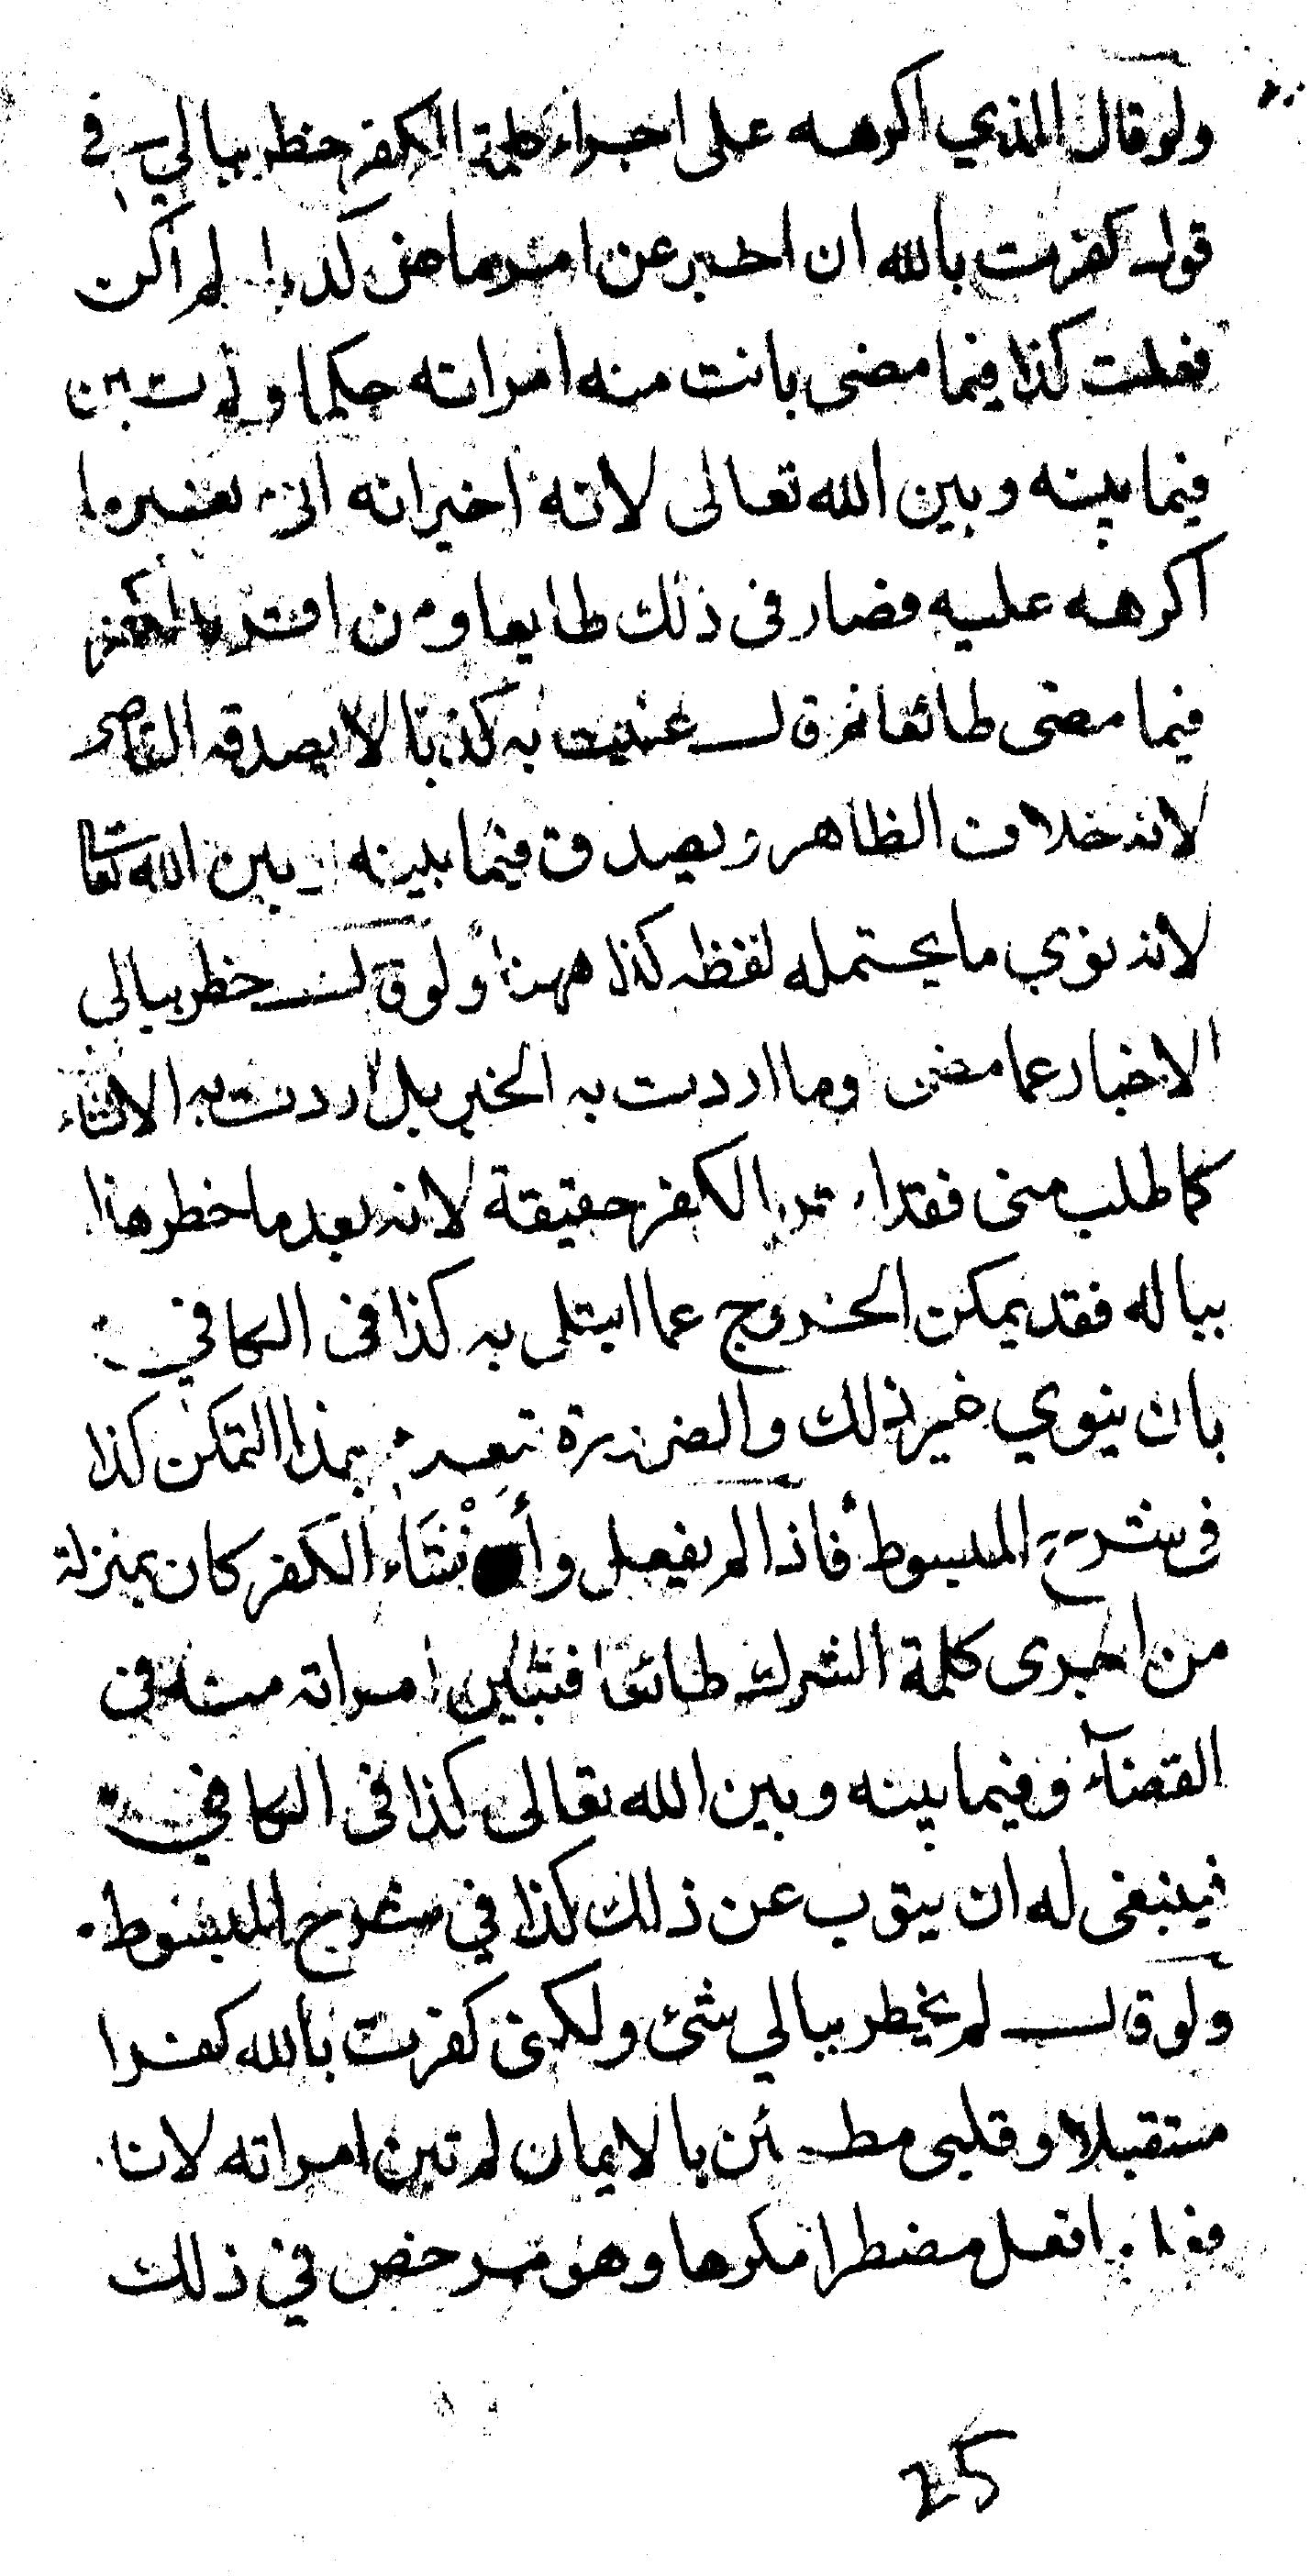 ولو قال الذي اكرهه على اجراء كلمة الكفر خطر ببالي في
قولي كفرت بالله ان اخبر عن امر ماض كذبا لم اكن
فعلت كذا فيما مضى بانت منه امراته حكما ولم تبن
فيما بينه وبين الله تعالى لانه اخبر انه اتى بغير ما
اكرهه عليه فصار في ذلك طايعا ومن اقر بالكفر
فيما مضى طائعا ثم قال عنيت به كذبا لا يصدقه القاضي
لانه خلاف الظاهر ويصدق فيما بينه وبين الله تعالى
لانه نوي ما يحتمله لفظه كذا ههنا ولو قال خطر ببالي
الاخبار عما مضى وما اردت به الخبر بل اردت به الانشاء
كما طلب منى فقد الكفر حقيقة لانه بعد ما خطر هذا
بباله فقد يمكن الخروج عما ابتلى به كذا فى الكافي
بان ينوي غير ذلك والضرورة بهذا التمكن كذا
في شرح المبسوط فاذا لم يفعل وأنْشَاء الكفر كان بمنزلة
من اجرى كلمة الشرك طائعا فتباين امراته منه في
القضآء وفيما بينه وبين الله تعالى كذا فى الكافي
فينبغى له ان يتوب عن ذلك كذا في شرح المبسوط
ولو قال لم يخطر ببالي شئ ولكنى كفرت بالله كفرا
مستقبلا وقلبى مطمئن بالايمان لم تبن امراته لانا
افعل مضطرا مكرها وهو مرخص في ذلك
25